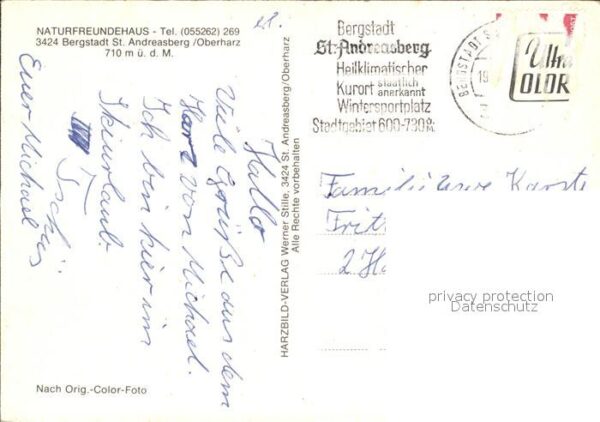 NATURFREUNDEHAUS - Tel. (055262) 269
3424 Bergstadt St. Andreasberg /Oberharz
710 m ü. d. M.
Hallo
Viele Grüße aus dem
Harz von Michael.
Ich bin hier im
Skiurlaub
Tschüs
Euer Michael
Nach Orig.-Color-Foto
HARZBILD-VERLAG Werner Stille, 3424 St. Andreasberg/Oberharz
Alle Rechte vorbehalten
Bergstadt
St. Andreasberg
Heilklimatischer
Kurort staatlich anerkannt
Wintersportplatz
Stadtgebiet 600-730 m
BERGSTADT S
19
Ultra
COLOR
Familie Uwe Karste
Frit
2 Ha
privacy protection
Datenschutz